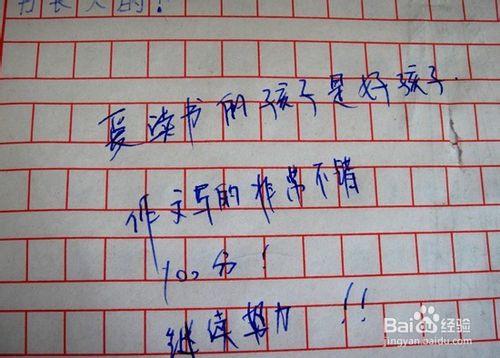 爱读书的孩子是好孩子.
作文写的非常不错
100分!
继续努力 !!
Baidu 经验
jingyan.baidu.com